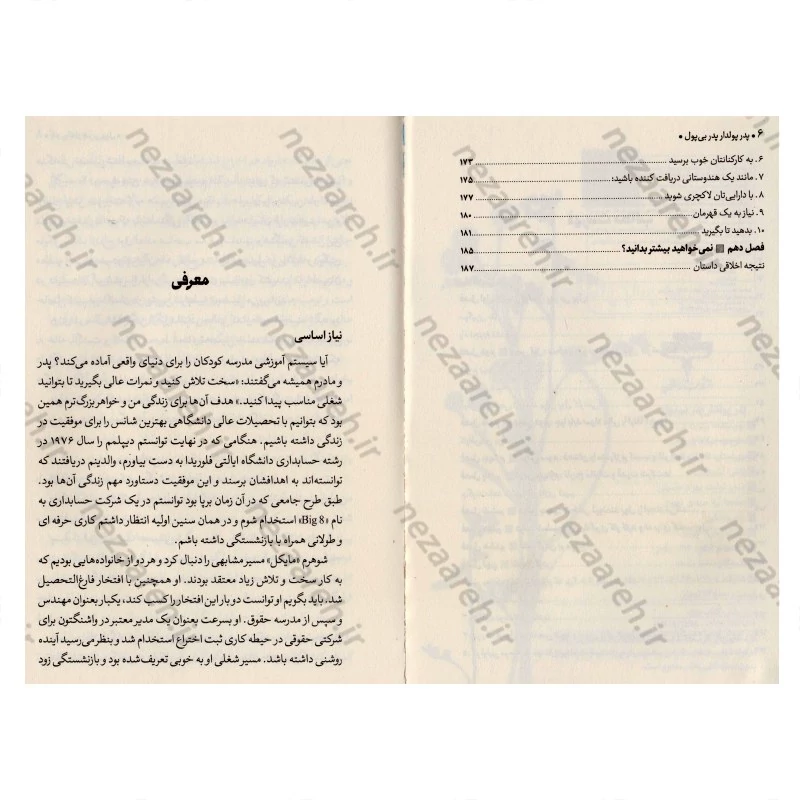 ۶ • پدر پولدار پدر بی‌پول •
۶. به کارکنانتان خوب برسید ۱۷۳
۷. مانند یک هندوستانی دریافت کننده باشید؛ ۱۷۵
۸. با دارایی‌تان لاکچری شوید ۱۷۷
۹. نیاز به یک قهرمان ۱۸۰
۱۰. بدهید تا بگیرید ۱۸۱
فصل دهم ▨ نمی‌خواهید بیشتر بدانید؟ ۱۸۵
نتیجه اخلاقی داستان ۱۸۷
معرفی
نیاز اساسی
آیا سیستم آموزشی مدرسه کودکان را برای دنیای واقعی آماده می‌کند؟ پدر
و مادرم همیشه می‌گفتند: «سخت تلاش کنید و نمرات عالی بگیرید تا بتوانید
شغلی مناسب پیدا کنید.» هدف آن‌ها برای زندگی من و خواهر بزرگ‌ترم همین
بود که بتوانیم با تحصیلات عالی دانشگاهی بهترین شانس را برای موفقیت در
زندگی داشته باشیم. هنگامی که در نهایت توانستم دیپلمم را سال ۱۹۷۶ در
رشته حسابداری دانشگاه ایالتی فلوریدا به دست بیاورم، والدینم دریافتند که
توانسته‌اند به اهدافشان برسند و این موفقیت دستاورد مهم زندگی آن‌ها بود.
طبق طرح جامعی که در آن زمان برپا بود توانستم در یک شرکت حسابداری به
نام «Big 8» استخدام شوم و در همان سنین اولیه انتظار داشتم کاری حرفه ای
و طولانی همراه با بازنشستگی داشته باشم.
شوهرم «مایکل» مسیر مشابهی را دنبال کرد و هر دو از خانواده‌هایی بودیم که
به کار سخت و تلاش زیاد معتقد بودند. او همچنین با افتخار فارغ‌التحصیل
شد. باید بگویم او توانست دو بار این افتخار را کسب کند، یکبار بعنوان مهندس
و سپس از مدرسه حقوق. او بسرعت بعنوان یک مدیر معتبر در واشنگتون برای
شرکتی حقوقی در حیطه کاری ثبت اختراع استخدام شد و بنظر می‌رسید آینده
روشنی داشته باشد. مسیر شغلی او به خوبی تعریف شده بود و بازنشستگی زود
nezaareh.ir
nezaareh.ir
nezaareh.ir
nezaareh.ir
nezaareh.ir
nezaareh.ir
nezaareh.ir
nezaareh.ir
nezaareh.ir